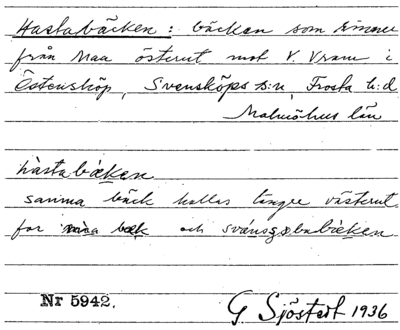 Hastabäcken: bäcken som rinner
från Maa österut mot V. Vram i
Östensköp, Svensköps s:n, Frosta h:d
Malmöhus län
hàstabæken
samma bäck kallas längre västerut
for bæk och
Nr 5942.
G Sjöstedt 1936